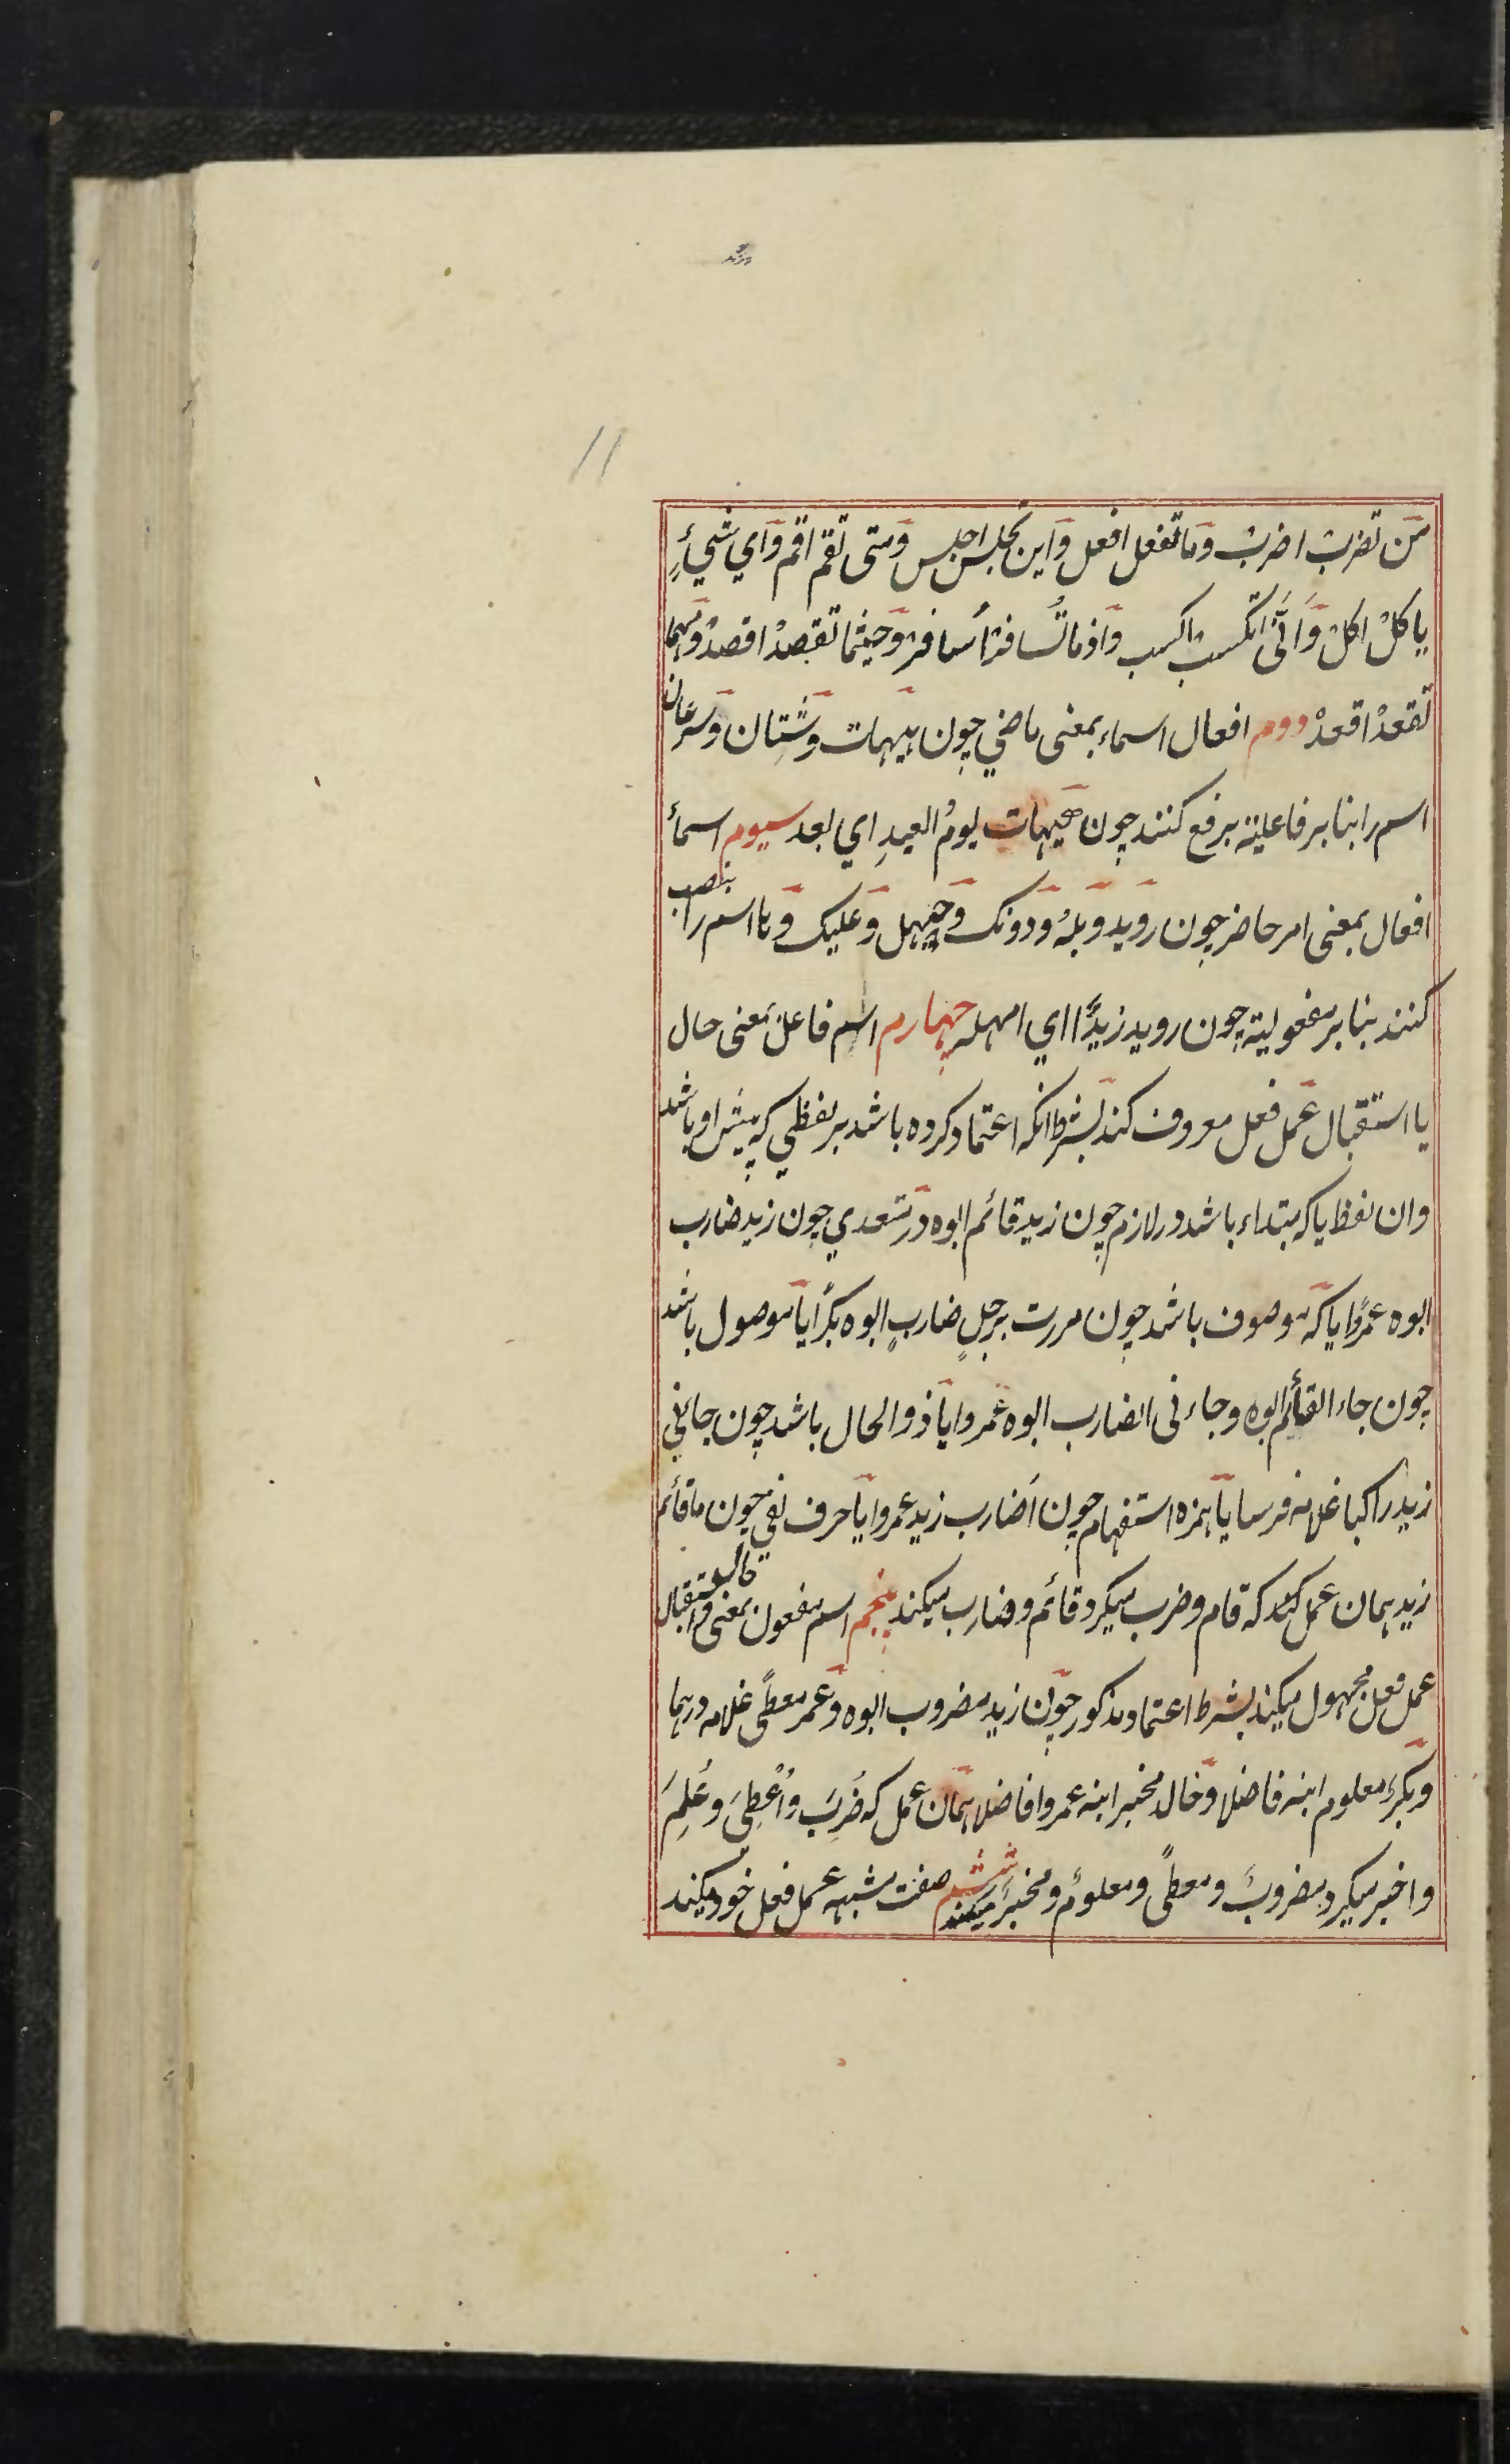 11
مَن تضربْ اضربْ وما تفعل افعل واین تجلس اجلس ومتی تقم اقم وای شیءٍ
یاکلْ اکلْ وَاَنّی تکسب اکسب واذما تُسافرْ اُسافرْ وحیثما تقصدْ اقصدْ ومهما
تقعدْ اقعدْ دوم افعال اسماء بمعنی ماضی چون هیهات وشَتّان وسرعان
اسم را بنابر فاعلیة برفع کنند چون هیهات یومُ العیدِ ای بعد سیوم اسمأ
افعال بمعنی امر حاضر چون روید وبله ودونک وحیهل وعلیک وها اسم را بنصب
کنند بنابر مفعولیة چون روید زیدًا ای امهله چهارم اسم فاعل بمعنی حال
یا استقبال عمل فعل معروف کند بشرط انکه اعتماد کرده باشد بر لفظی که پیش او باشد
وان لفظ یا که مبتداء باشد در لازم چون زید قائم ابوه ودر متعدی چون زید ضارب
ابوه عمرًوا یا که موصوف باشد چون مررت برجلٍ ضاربٍ ابوه بکرًا یا موصول باشد
چون جاء القائم ابوه وجاء نی الضارب ابوه عمروا یا ذوالحال باشد چون جائنی
زید راکبا غلامه فرسا یا همزه استفهام چون اَضارب زید عمروا یا حرف نفی چون ما قائم
زید همان عمل کند که قام وضرب میکرد قائم وضارب میکند پنجم اسم مفعول بمعنی حال واستقبال
عمل فعل مجهول میکند بشرط اعتماد مذکور چون زید مضروب ابوه وعمر معطًی غلامه درهما
وبکر معلوم ابنه فاضلا وخال مخبر ابنه عمروا فاضلا همان عمل که ضُرِبَ واُعْطِیَ وعُلِمَ
واخبر میکرد مضروبٌ ومعطًی ومعلومٌ ومخبرٌ میکند ششم صفت مشبهه عمل فعل خود میکند